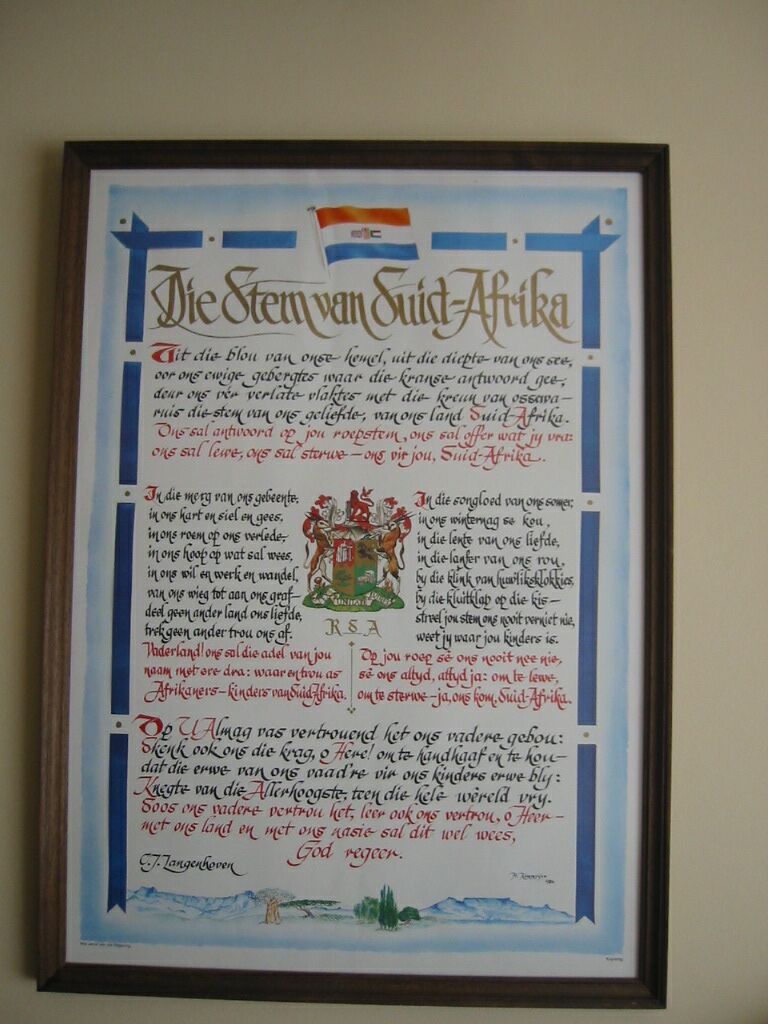 Die Stem van Suid-Afrika
Uit die blou van onse hemel, uit die diepte van ons see,
oor ons ewige gebergtes waar die kranse antwoord gee,
deur ons vêr verlate vlaktes met die kreun van ossewa-
ruis die stem van ons geliefde, van ons land Suid-Afrika.
Ons sal antwoord op jou roepstem, ons sal offer wat jy vra:
ons sal lewe, ons sal sterwe – ons vir jou, Suid-Afrika.
In die merg van ons gebeente,
in ons hart en siel en gees,
in ons roem op ons verlede,
in ons hoop op wat sal wees,
in ons wil en werk en wandel,
van ons wieg tot aan ons graf-
deel geen ander land ons liefde,
trek geen ander trou ons af.
Vaderland! ons sal die adel van jou
naam met ere dra: waar en trou as
Afrikaners – kinders van Suid-Afrika.
In die songloed van ons somer,
in ons winternag se kou,
in die lente van ons liefde,
in die lanfer van ons rou,
by die klink van huwliksklokkies,
by die kluitklap op die kis –
streel jou stem ons nooit verniet nie,
weet jy waar jou kinders is.
Op jou roep sê ons nooit nee nie,
sê ons altyd, altyd ja: om te lewe,
om te sterwe – ja, ons kom, Suid-Afrika.
UNITATE VIRES
R S A
Op U Almag vas vertrouend het ons vadere gebou:
Skenk ook ons die krag, o Here! om te handhaaf en te hou-
dat die erwe van ons vaad're vir ons kinders erwe bly:
Knegte van die Allerhoogste, teen die hele wêreld vry.
Soos ons vadere vertrou het, leer ook ons vertrou, o Heer –
met ons land en met ons nasie sal dit wel wees,
God regeer.
C.J. Langenhoven